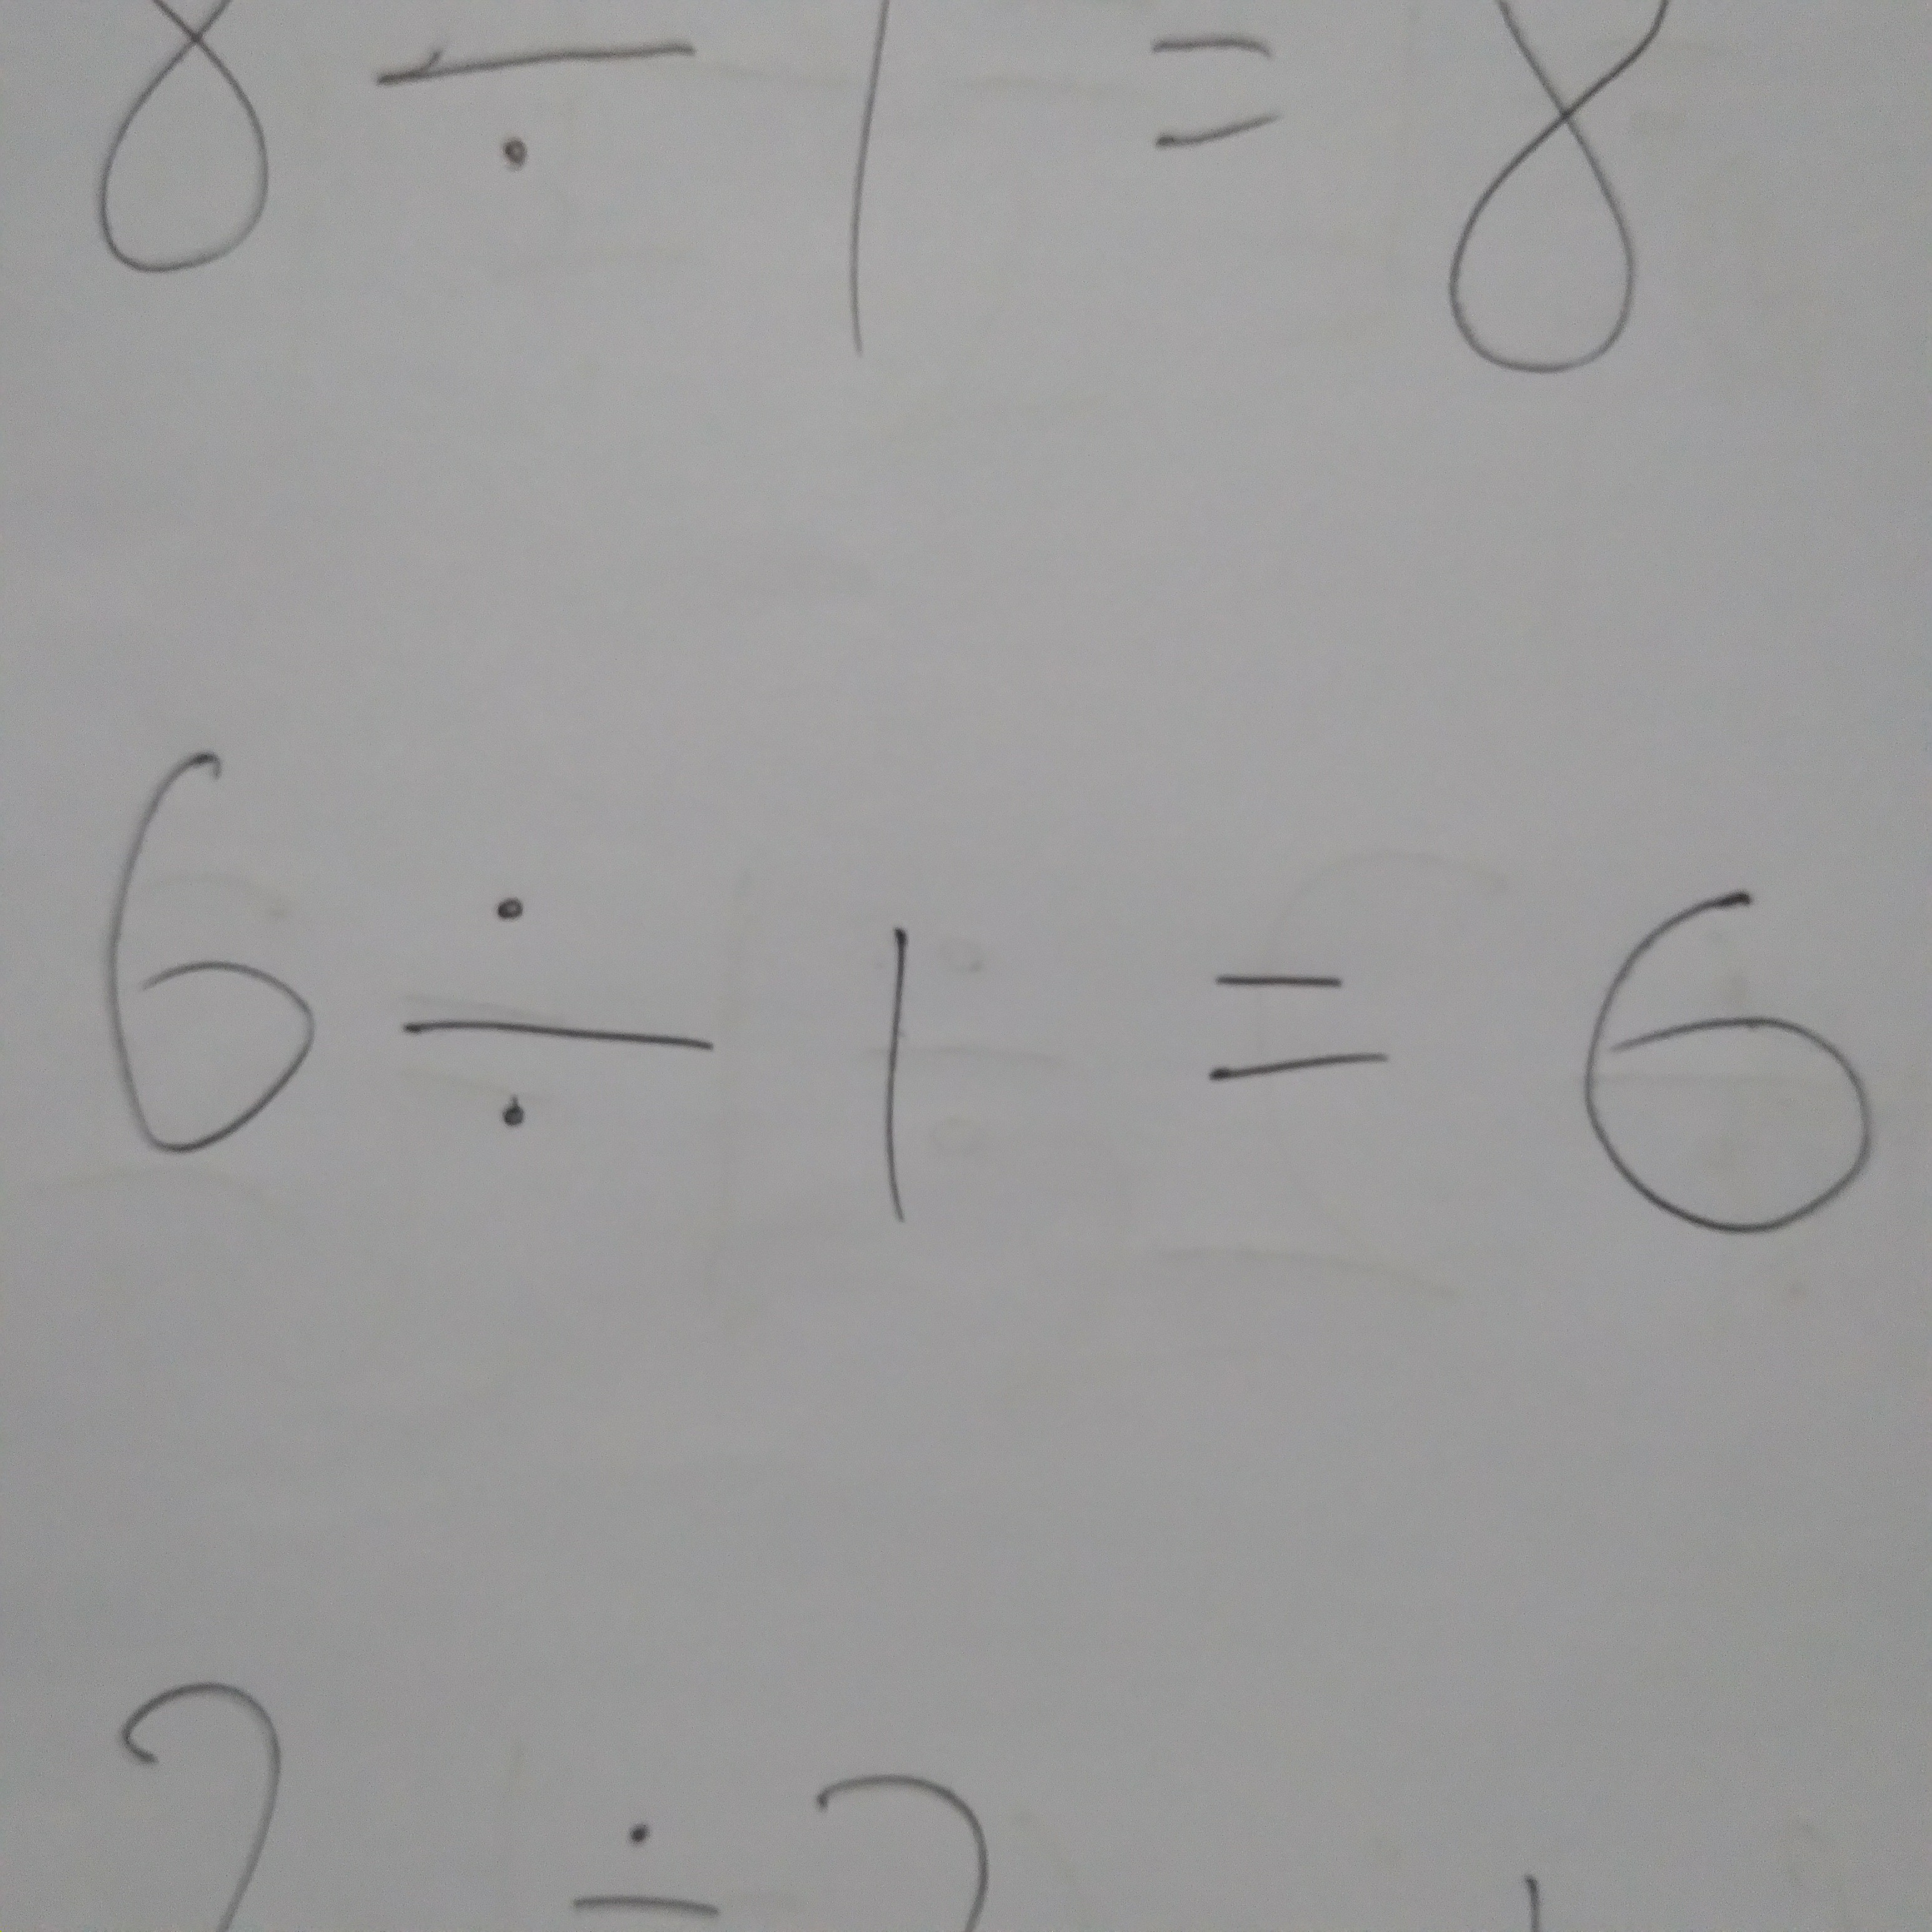 8 ÷ 1 = 8
6 ÷ 1 = 6
2 ÷ 2